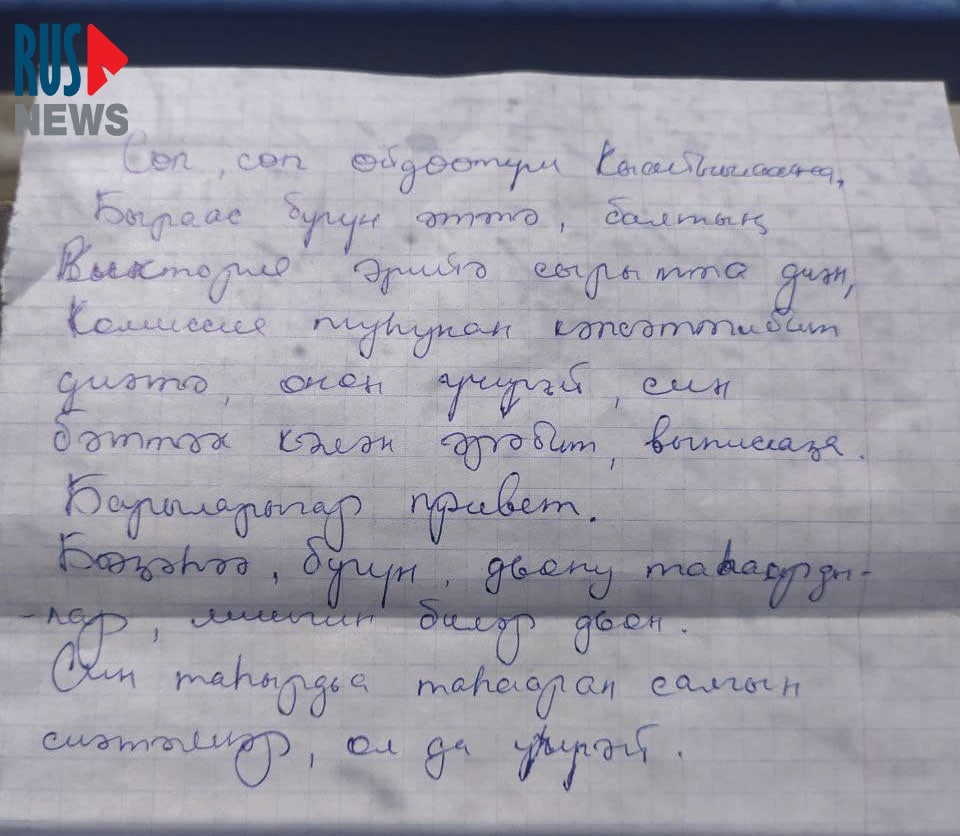 RUS
NEWS
Сөп, сөп өйдөөтүм
Быраас бүгүн эттэ, балтың
Виктория эрийэ сырытта диэн,
Комиссия туһунан кэпсэттибит
диэтэ, онон үчүгэй, син
бэттэх кэлэн эрэбит, выпискаҕа.
Барыларыгар привет.
Бэҕэһээ, бүгүн, дьону таһаарды-
-лар, миигин билэр дьон.
Син таһырдьа таһааран салгын
сиэтэллэр, ол да үчүгэй.